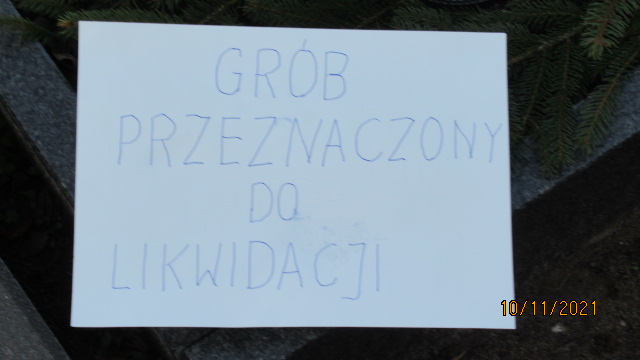 GRÓB
PRZEZNACZONY
DO
LIKWIDACJI
10/11/2021